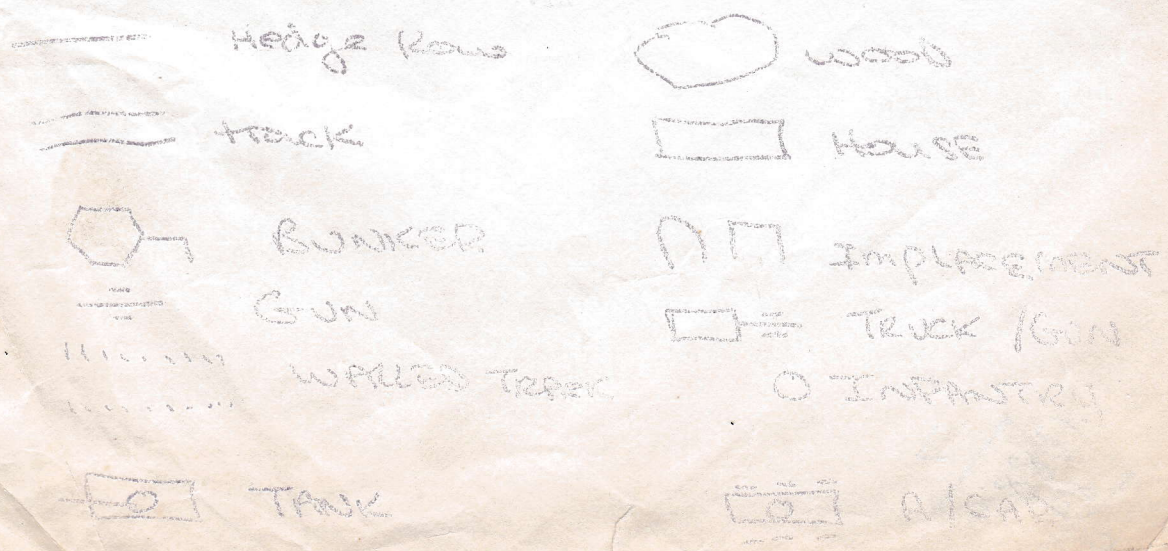 Hedge Row
WOOD
track
HOUSE
BUNKER
IMPLACEMENT
GUN
TRUCK / GUN
WALLED TRACK
INFANTRY
TANK
A/CAR